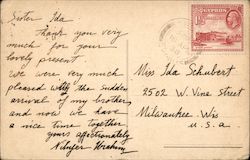 Sister Ida
Thank you very
much for your
lovely present
We were very much
pleased with the sudden
arrival of my brothers
and now we have
a nice time together
yours affectionately
Ibrahim
CYPRUS
Miss Ida Schubert
2502 W. Vine Street
Milwaukee Wis
U.S.A.